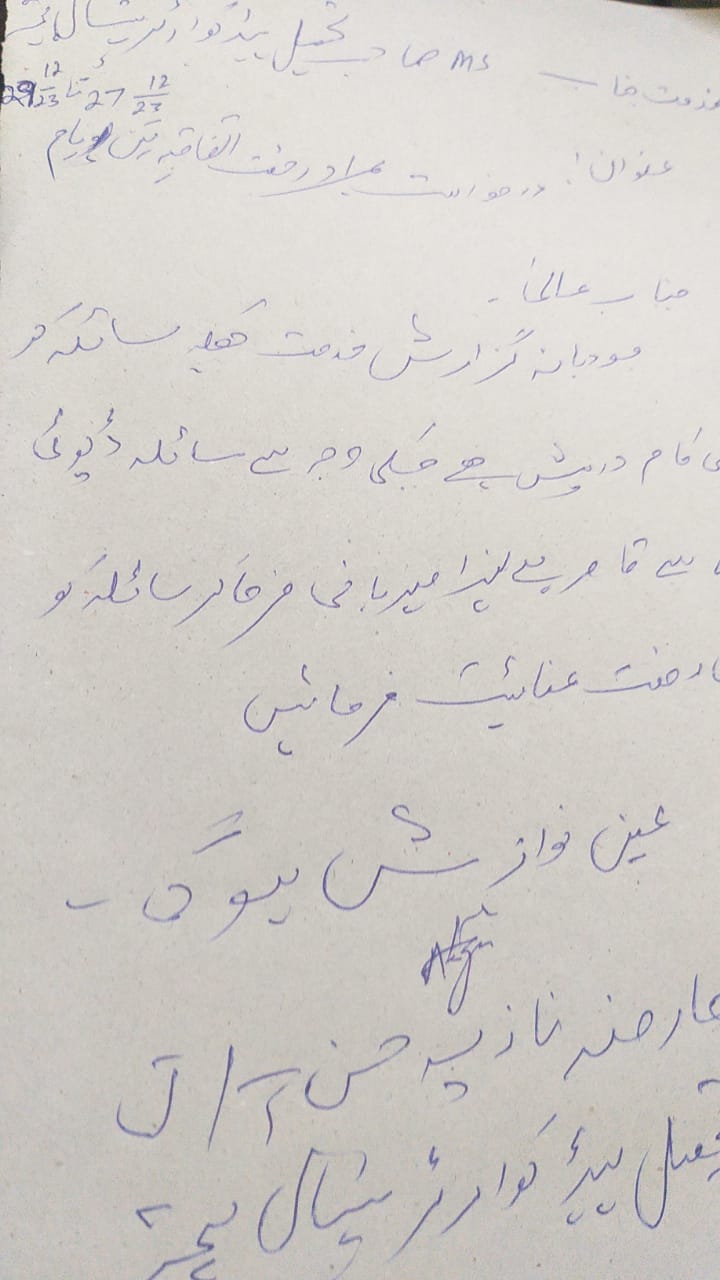 خدمت جناب MS صاحب تحصیل ہیڈ کوارٹر ہسپتال
27 12/23 تا 29 12/23
عنوان: درخواست برائے رخصت اتفاقیہ تین ایام
جناب عالی۔
مودبانہ گزارش خدمت ھیکہ سائلہ کو
کام درپیش ہے جسکی وجہ سے سائلہ ڈیوٹی
سے قاصر ہے لہذا مہربانی فرما کر سائلہ کو
رخصت عنائیت فرمائیں
عین نوازش ہوگی۔
عارضہ نازیہ حسن
تحصیل ہیڈ کوارٹر ہسپتال